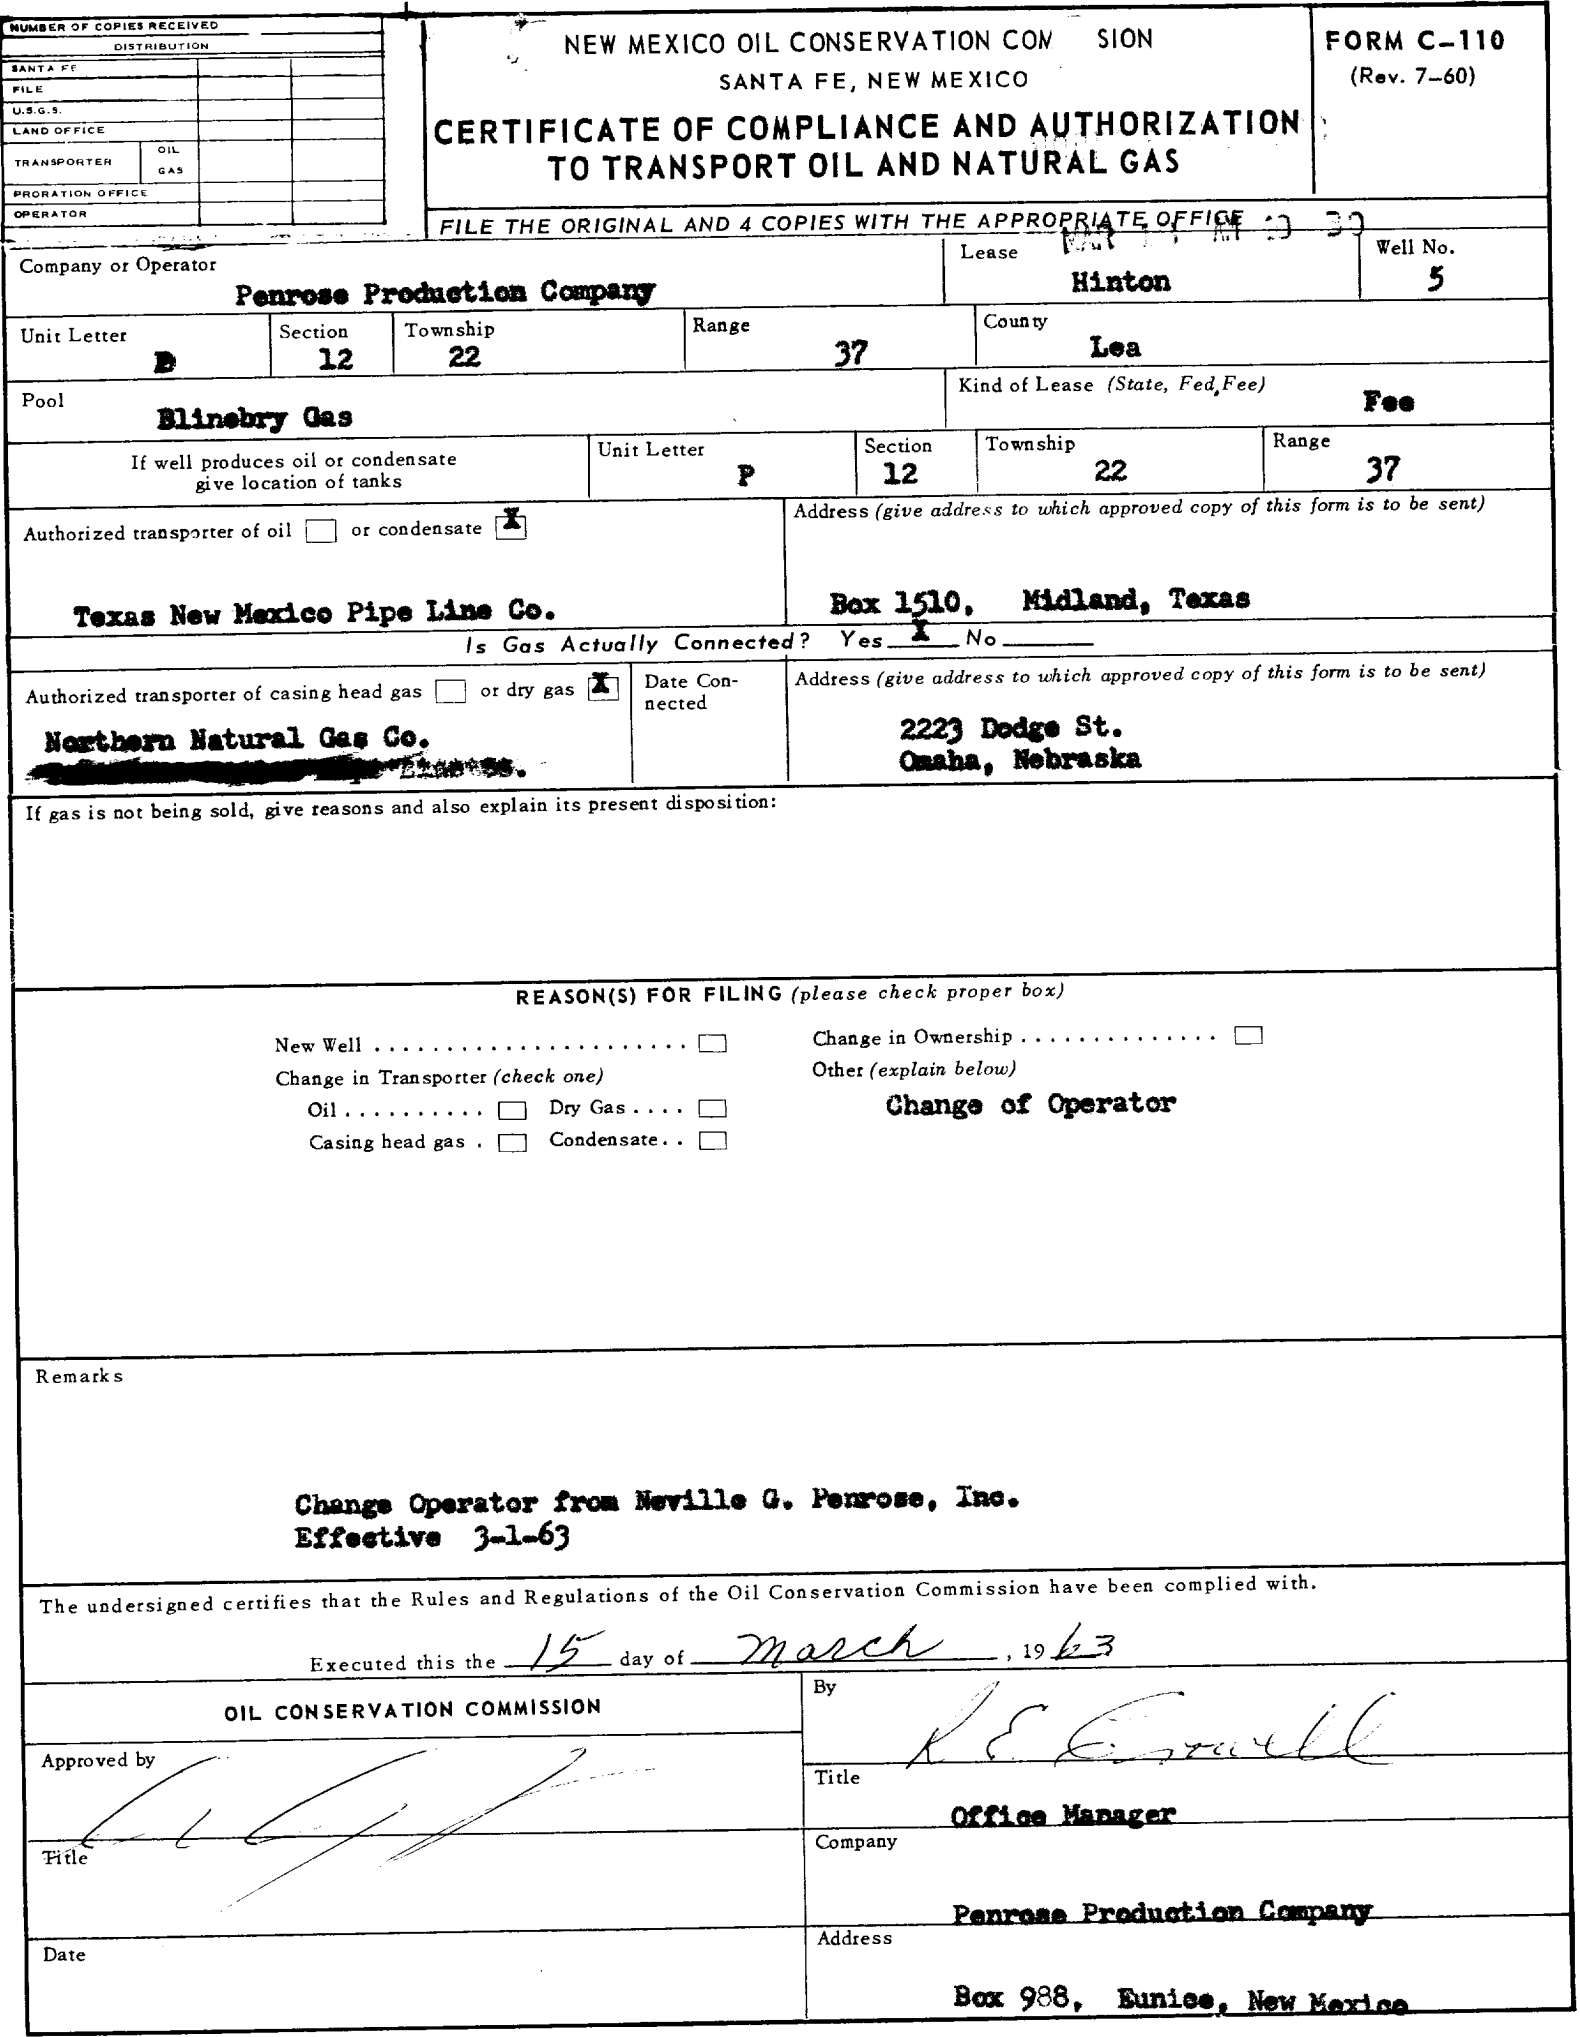 NUMBER OF COPIES RECEIVED
DISTRIBUTION
SANTA FE
FILE
U.S.G.S.
LAND OFFICE
TRANSPORTER OIL
GAS
PRORATION OFFICE
OPERATOR
NEW MEXICO OIL CONSERVATION COM SION
SANTA FE, NEW MEXICO
CERTIFICATE OF COMPLIANCE AND AUTHORIZATION
TO TRANSPORT OIL AND NATURAL GAS
FORM C-110
(Rev. 7-60)
FILE THE ORIGINAL AND 4 COPIES WITH THE APPROPRIATE OFFICE
MAR
Company or Operator
Penrose Production Company
Lease
Hinton
Well No.
5
Unit Letter
Section
12
Township
22
Range
37
County
Lea
Pool
Blinebry Gas
Kind of Lease (State, Fed, Fee)
Fee
If well produces oil or condensate
give location of tanks
Unit Letter
P
Section
12
Township
22
Range
37
Authorized transporter of oil or condensate X
Texas New Mexico Pipe Line Co.
Address (give address to which approved copy of this form is to be sent)
Box 1510, Midland, Texas
Is Gas Actually Connected? Yes X No
Authorized transporter of casing head gas or dry gas X
Northern Natural Gas Co.
Date Con-
nected
Address (give address to which approved copy of this form is to be sent)
2223 Dodge St.
Omaha, Nebraska
If gas is not being sold, give reasons and also explain its present disposition:
REASON(S) FOR FILING (please check proper box)
New Well . . . . . . . . . . . . . . . . . . . . . .
Change in Ownership . . . . . . . . . . . . . .
Change in Transporter (check one)
Other (explain below)
Oil . . . . . . . . . . Dry Gas . . . .
Change of Operator
Casing head gas . Condensate . .
Remarks
Change Operator from Neville G. Penrose, Inc.
Effective 3-1-63
The undersigned certifies that the Rules and Regulations of the Oil Conservation Commission have been complied with.
Executed this the 15 day of March, 1963
OIL CONSERVATION COMMISSION
Approved by
Title
Date
By
R E
Title
Office Manager
Company
Penrose Production Company
Address
Box 988, Eunice, New Mexico